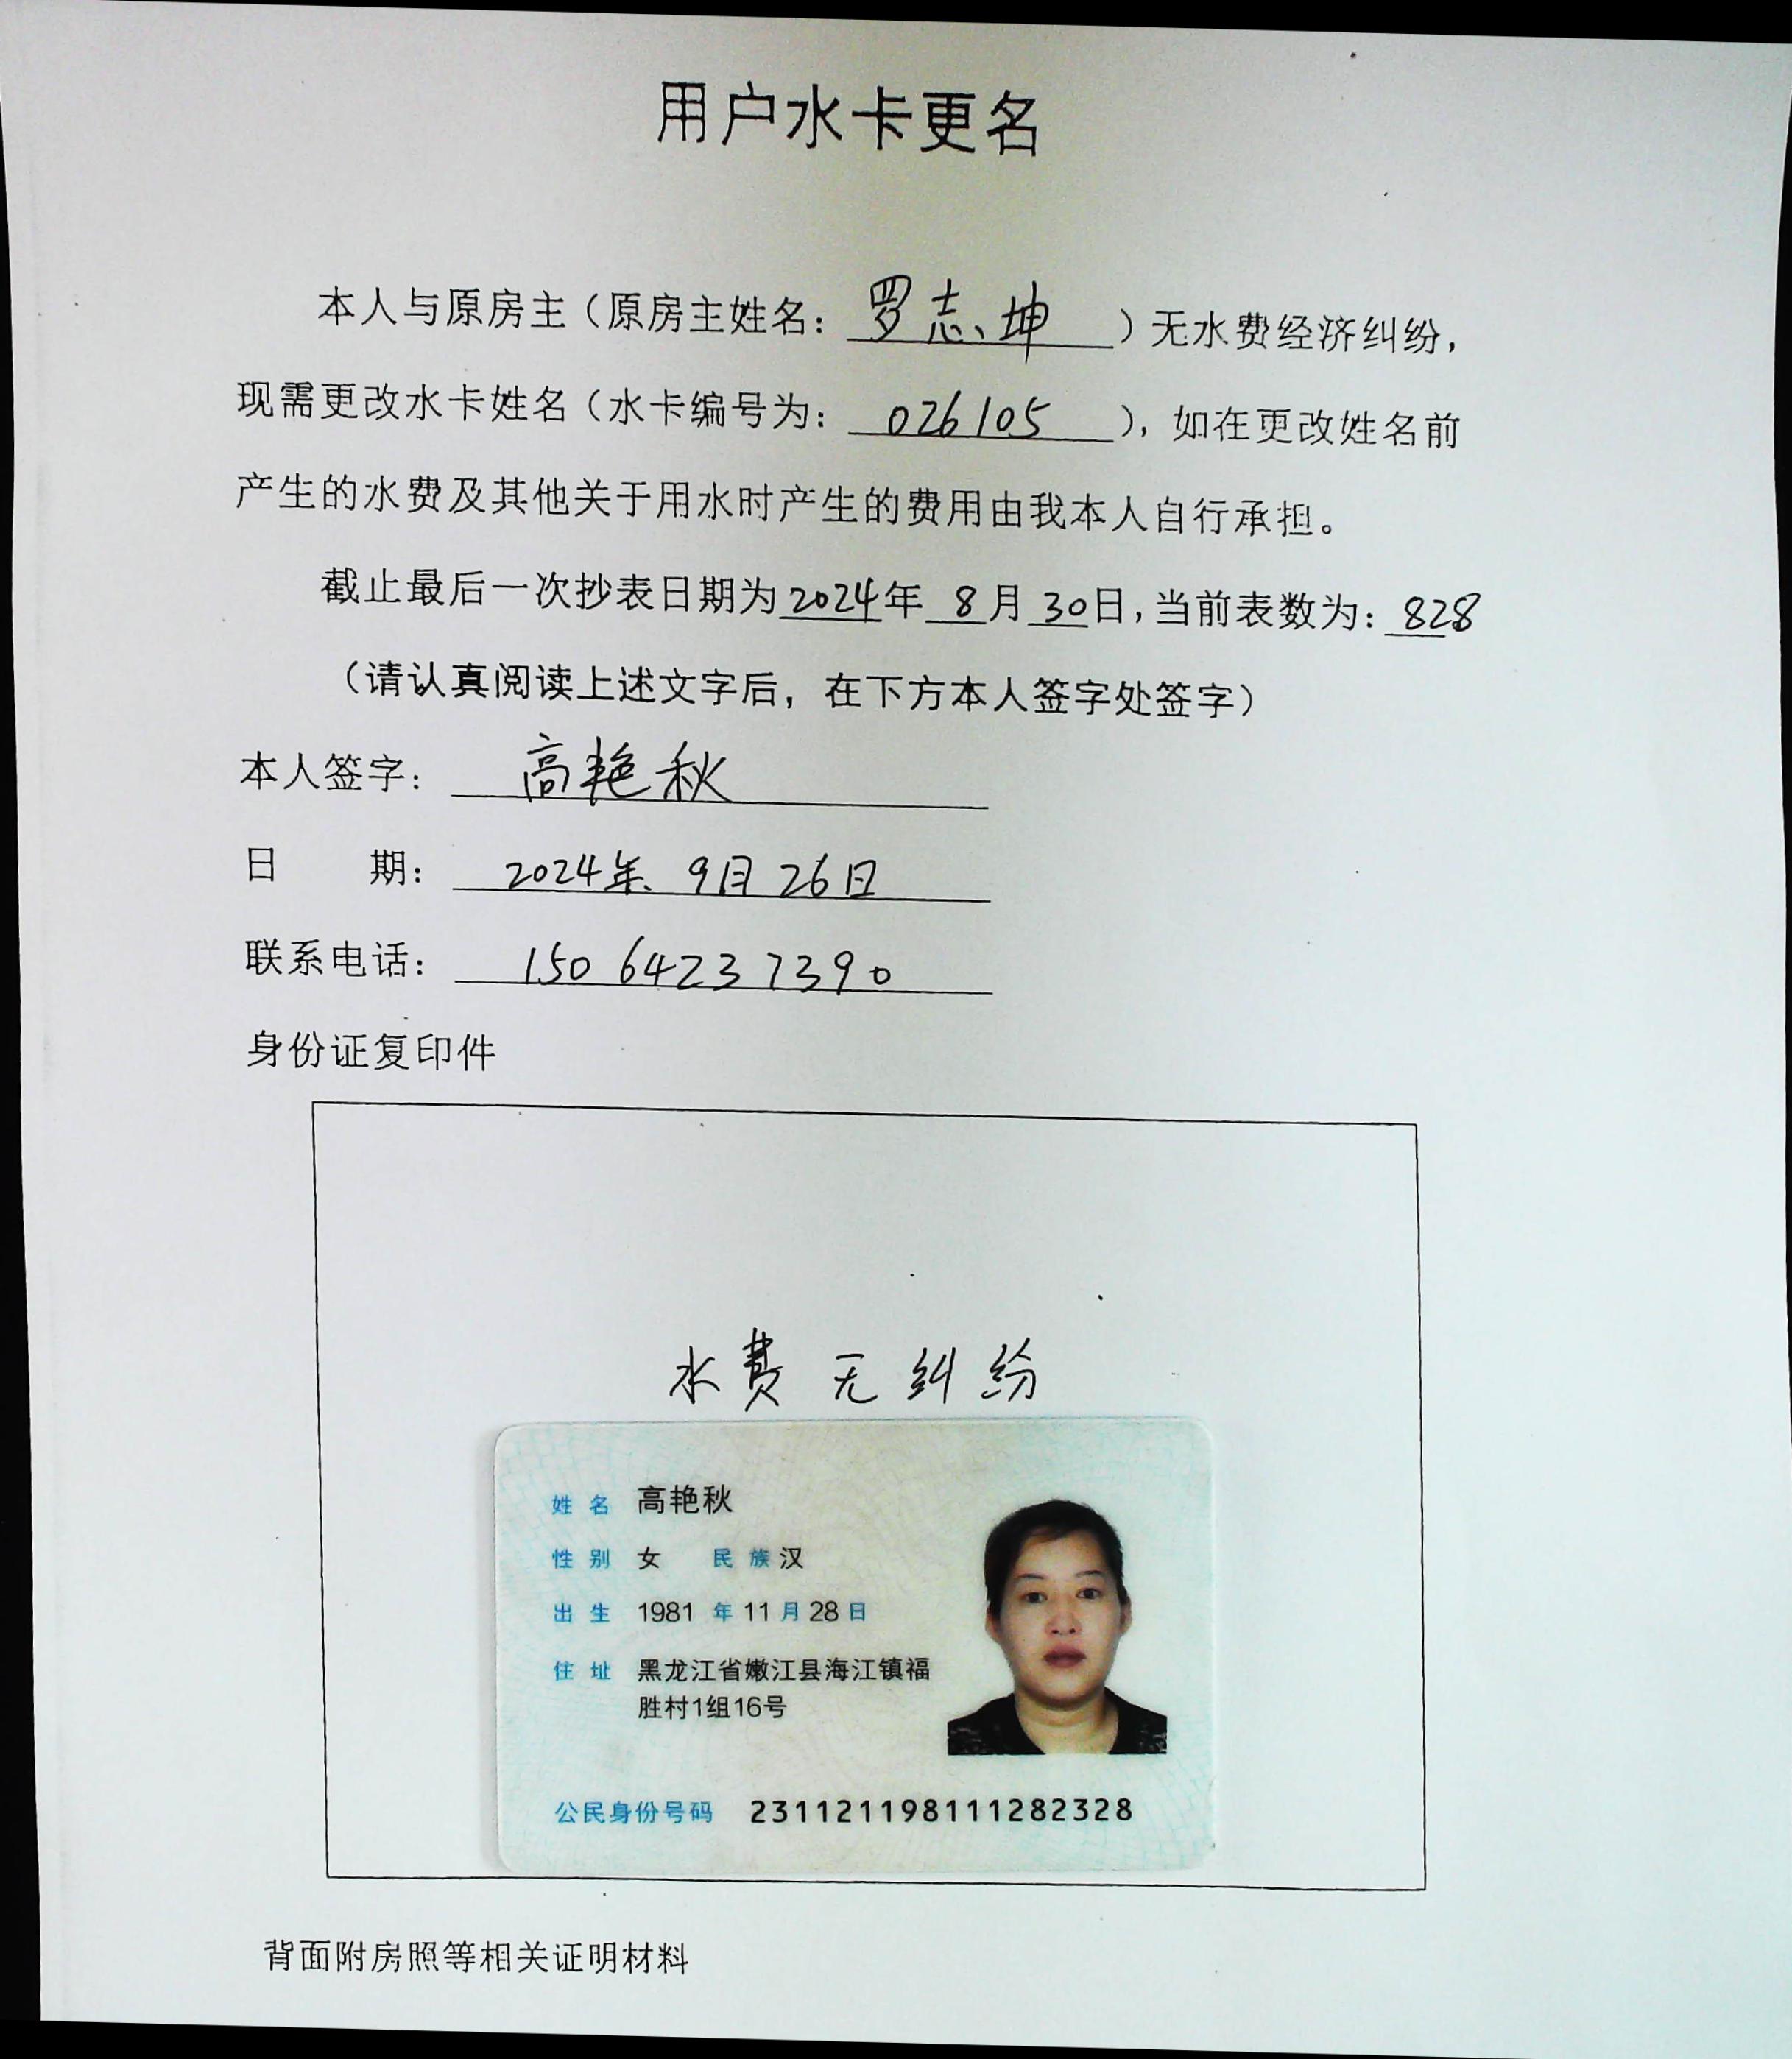 用户水卡更名
本人与原房主（原房主姓名：罗志坤）无水费经济纠纷，
现需更改水卡姓名（水卡编号为：026105），如在更改姓名前
产生的水费及其他关于用水时产生的费用由我本人自行承担。
截止最后一次抄表日期为2024年8月30日，当前表数为：828
（请认真阅读上述文字后，在下方本人签字处签字）
本人签字：高艳秋
日 期：2024年9月26日
联系电话：15064237390
身份证复印件
水费无纠纷
姓名 高艳秋
性别 女 民族 汉
出生 1981年11月28日
住址 黑龙江省嫩江县海江镇福
胜村1组16号
公民身份号码 231121198111282328
背面附房照等相关证明材料